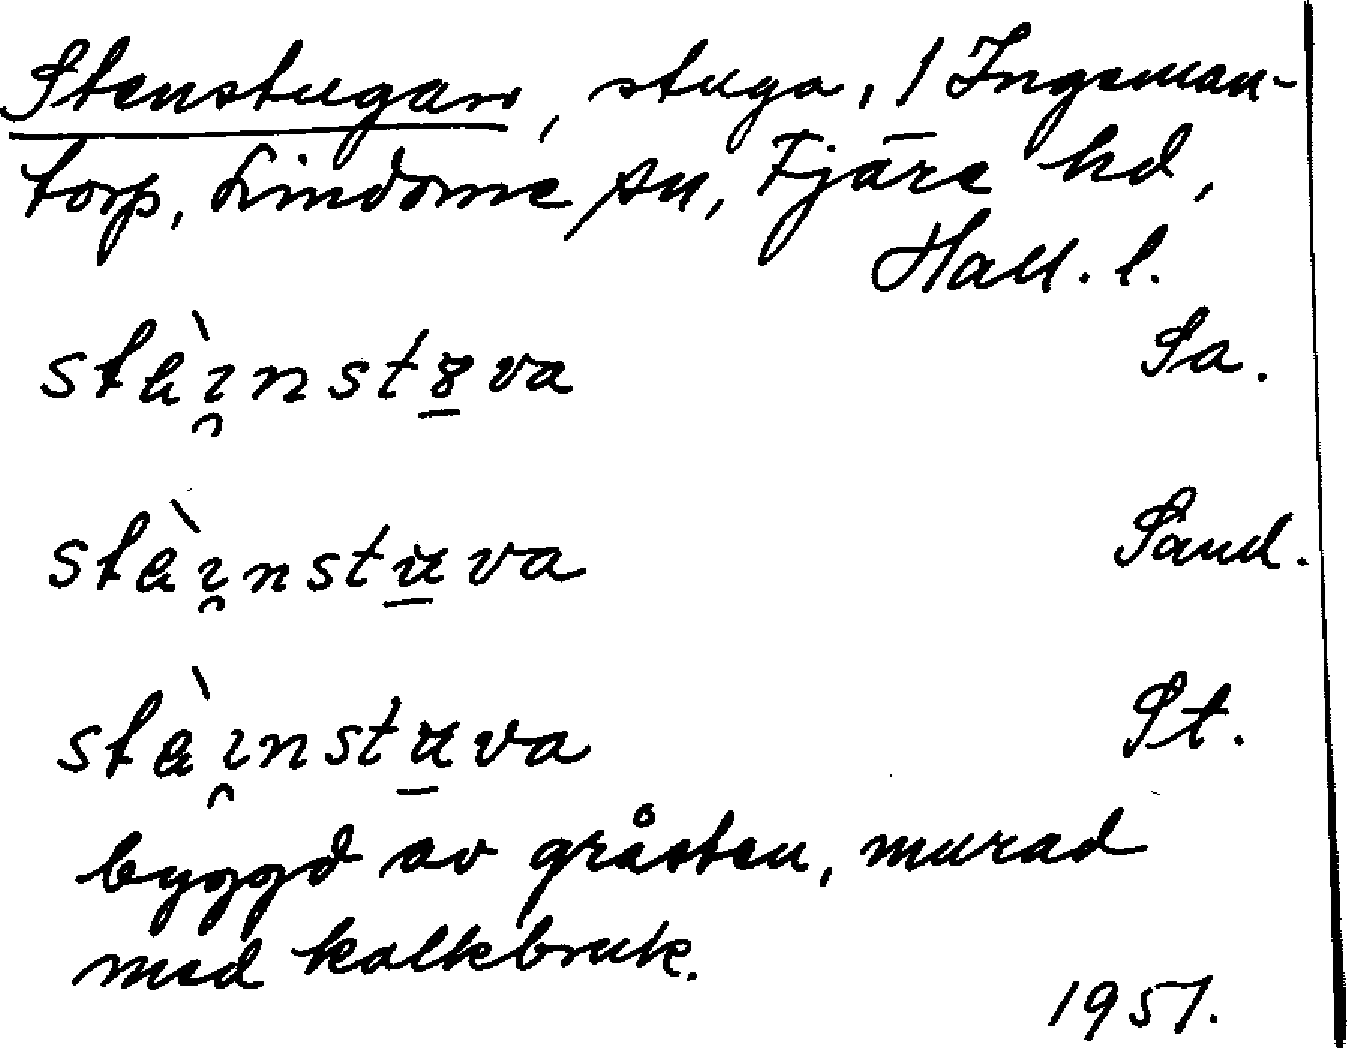 Stenstugan, stuga, 1 Ingeman-
torp, Lindome sn, Fjäre hd,
Hall. l.
stèi̯nstova Sa.
stèi̯nstu̱va Sand.
stèi̯nstu̱va St.
byggd av gråsten, murad
med kalkbruk.
1951.